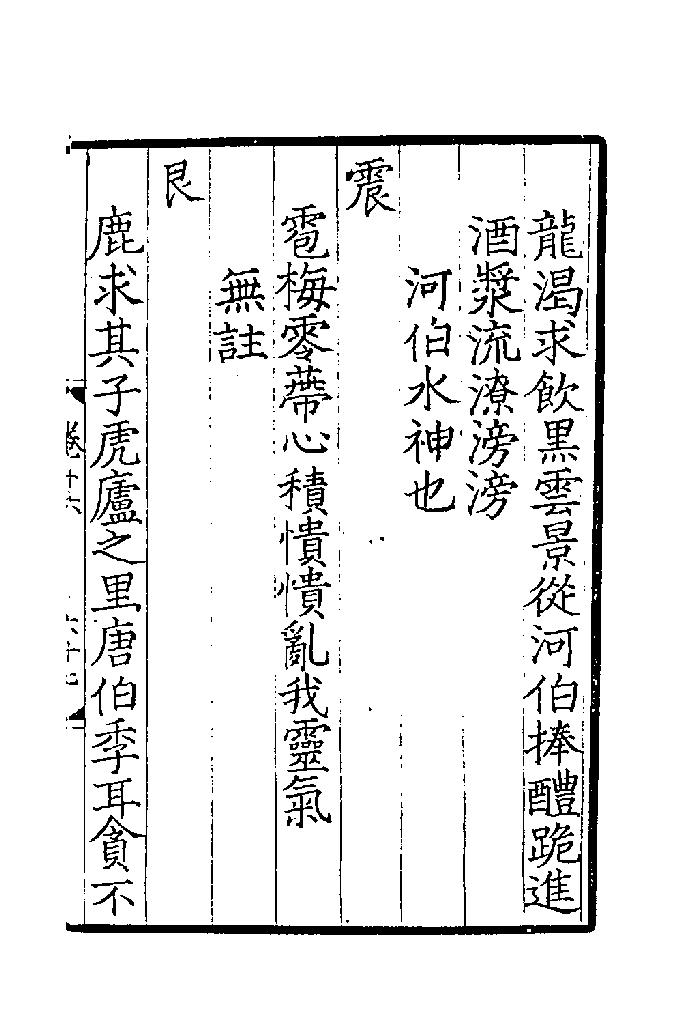 龍渴求飲黒雲景從河伯捧醴跪進
酒漿流潦滂滂
河伯水神也
震
雹梅零蔕心積憒憒亂我靈氣
無註
艮
鹿求其子虎廬之里唐伯季耳貪不
卷十六
六十七